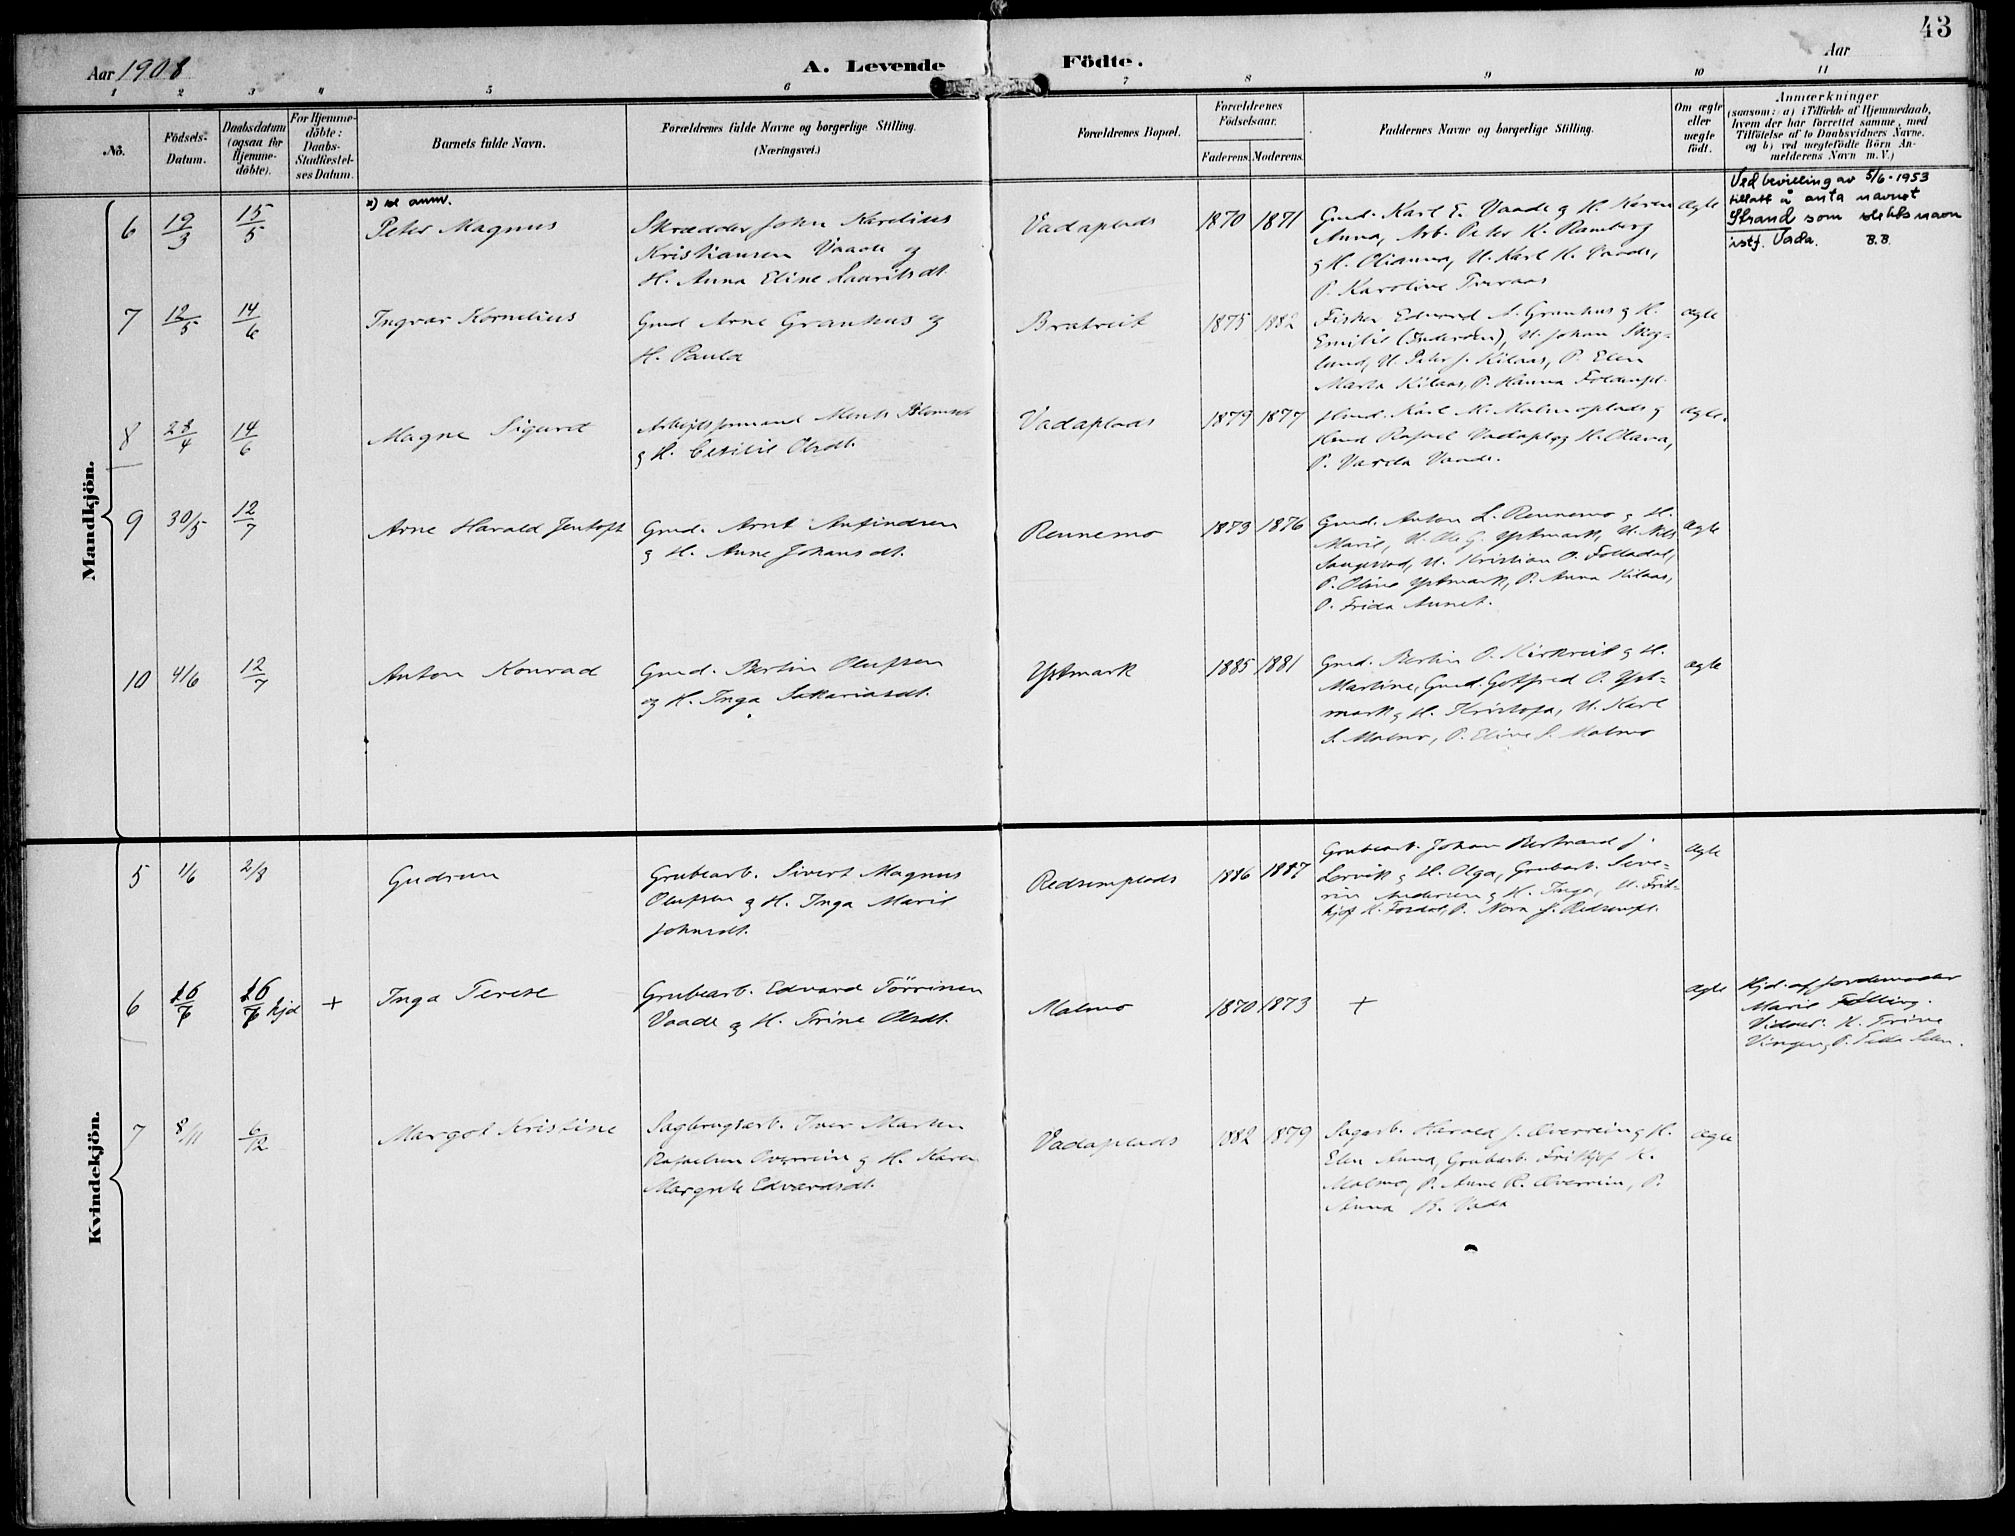 43
Aar 1908
A. Levende Födte.
Aar
1 2 3 4 5 6 7 8 9 10 11
No.
Födsels-Datum.
Daabsdatum (ogsaa for Hjemme-döbte).
For Hjemme-döbte: Daabs-Stadfæstel-ses Datum.
Barnets fulde Navn.
Forældrenes fulde Navne og borgerlige Stilling.
(Næringsvei.)
Forældrenes Bopæl.
Forældrenes Födselsaar.
Faderens. Moderens.
Faddernes Navne og borgerlige Stilling.
Om ægte eller uægte födt.
Anmærkninger
(saasom: a) i Tilfælde af Hjemmedaab,
hvem der har forrettet samme, med
Tilföielse af to Daabsvidners Navne.
og b) ved uægtefödte Börn An-
melderens Navn m. V.)
Mandkjön.
x) se anm.
6 19/3 15/5 Peter Magnus
Skrædder John Karelius
Kristiansen Vaade og
H. Anna Eline Lauritsdt.
Vadaplads 1870 1871
Gmd. Karl E. Vaade og H. Karen
Anna, Arb. Peter K. Ramberg
og H. Olianna, U. Karl K. Vaade,
P. Karoline
ægte
Ved bevilling av 5/6-1953
tillatt å anta navnet
Strand som slektsnavn
istf. Vada. B.B.
7 12/5 14/6 Ingvar Kornelius
Gmd Arne Granhus og
H. Paula
Bratreit 1875 1882
Fisker Edvard A. Granhus og H.
Emilie U. Johan Skog-
lund, U. Peter J. Kilaas, P. Elen
Marta Kilaas, P. Hanna
ægte
8 28/4 14/6 Magne Sigurd
Arbeidsformand
og H. Olsdt.
Vadaplads 1879 1877
Karl M. Malmoplads og
Rafael Vadapl. og H. Olava,
P. Vaade.
ægte.
9 30/5 12/7 Arne Harald Jentoft
Gmd. Arnt Anfindsen
og H. Anne Johansdt.
Rennemo 1873 1876
Gmd. Anton L. Rennemo og H.
Marie, U. Ole G. Ystmark, U. Nils
U. Kristian O. Folladal,
P. Oline Ystmark, P. Anna Kilaas,
P. Frida Aunet.
ægte
10 4/6 12/7 Anton Konrad
Gmd. Bertin Olufsen
og H. Inga Sakariasdt.
Ystmark 1885 1881
Gmd. Bertin O. Kirkreit og H.
Martine, Gmd. Gotfred O. Yst-
mark og H. Kristofa, U. Karl
S. Malmo, P. Eline S. Malmo
ægte
Kvindekjön.
5 1/6 2/8 Gudrun
Grubearb. Sivert Magnus
Olufsen og H. Inga Marie
Johnsdt.
Redsemplads 1886 1887
Grubearb. Johan Bertrand J.
Lorvik og H. Olga, Grubearb. Seve-
rin Andersen og H. Inga, U. Frit-
hjof K. P. Nora J. Redsempl.
ægte
6 16/7 16/7 hjd + Inga Terese
Grubearb. Edvard Törrisen
Vaade og H. Trine Olsdt.
Malmo 1870 1873 +
ægte
Hjd. af jordemoder
Marie Fölling.
Vidner: H. Trine
Vingen og P.
7 8/11 6/12 Margot Kristine
Sagbrugsarb. Iver Marten
Rafaelsen Overrein og H. Karen
Margrete Edvardsdt.
Vadaplads 1882 1879
Sagarb. Harald J. Overrein og H.
Elen Anna, Grubearb. Frithjof K.
Malmo, P. Anne R. Overrein, P.
Anna K. Vada
ægte